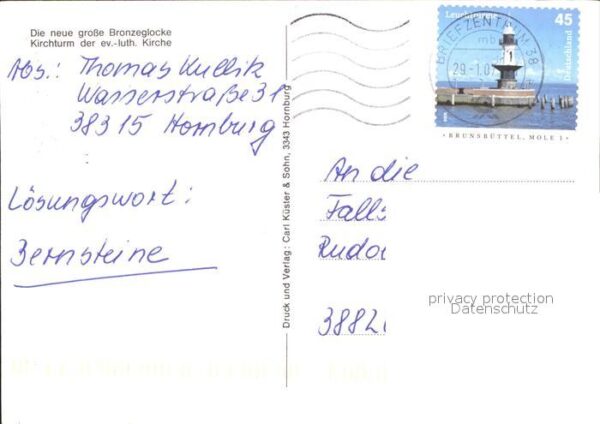 Die neue große Bronzeglocke
Kirchturm der ev.-luth. Kirche
Abs.: Thomas Kullik
Wasserstraße 31
38315 Hornburg
Lösungswort:
Bernsteine
Druck und Verlag: Carl Küster & Sohn, 3343 Hornburg
Leuchttürme
45
Deutschland
BRIEFZENTRUM 38
mb
29.-1.07
BRUNSBÜTTEL, MOLE 1
An die
Falls
Rudo
3882
privacy protection
Datenschutz